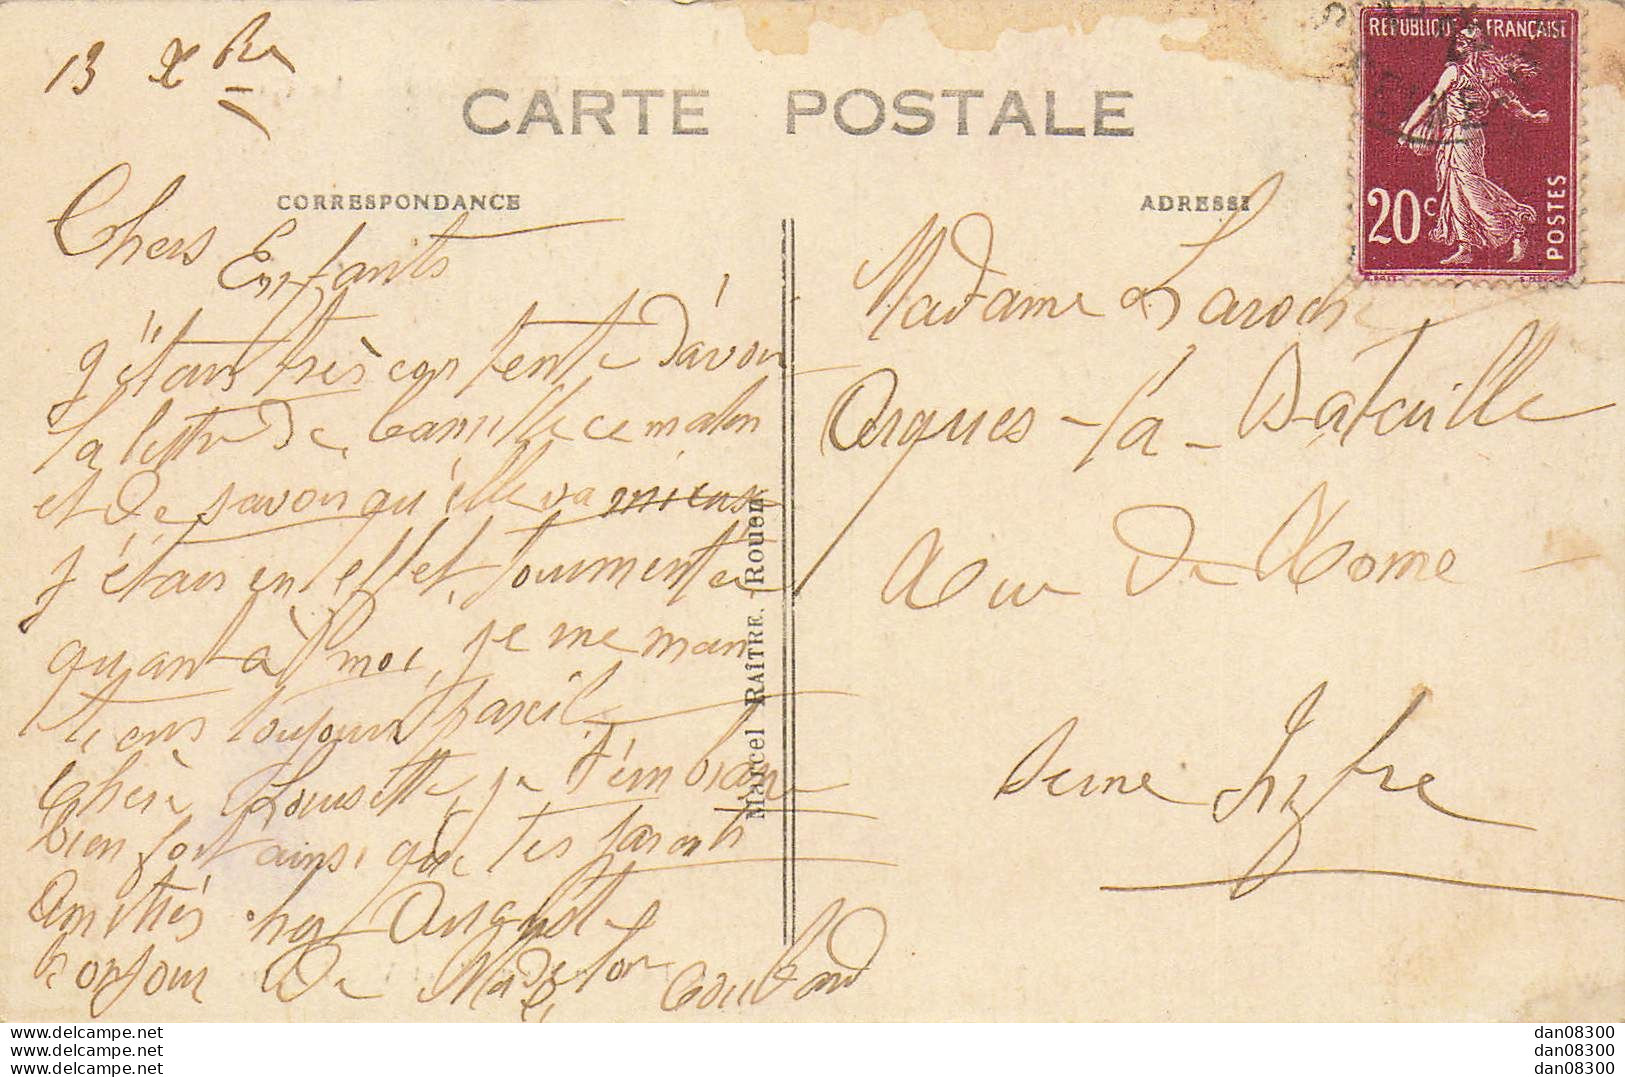 13 Xbre
CARTE POSTALE
CORRESPONDANCE
ADRESSE
REPUBLIQUE FRANÇAISE
20c
POSTES
Chers Enfants
j'étais très contente d'avoir
la lettre de Camille ce matin
et de savoir qu'elle va mieux
j'étais en effet tourmentée
quant à moi, je me main
tiens toujours pareil
Chère Lousette je t'embrasse
bien fort ainsi que tes parents
Amitiés chez Auguste
bonjour de Madelon Coulard
Madame Laroche
Arques-la-Bataille
Rue de Rome
Seine Infre
Marcel RAÎTRE. Rouen
www.delcampe.net
www.delcampe.net
www.delcampe.net
dan08300
dan08300
dan08300